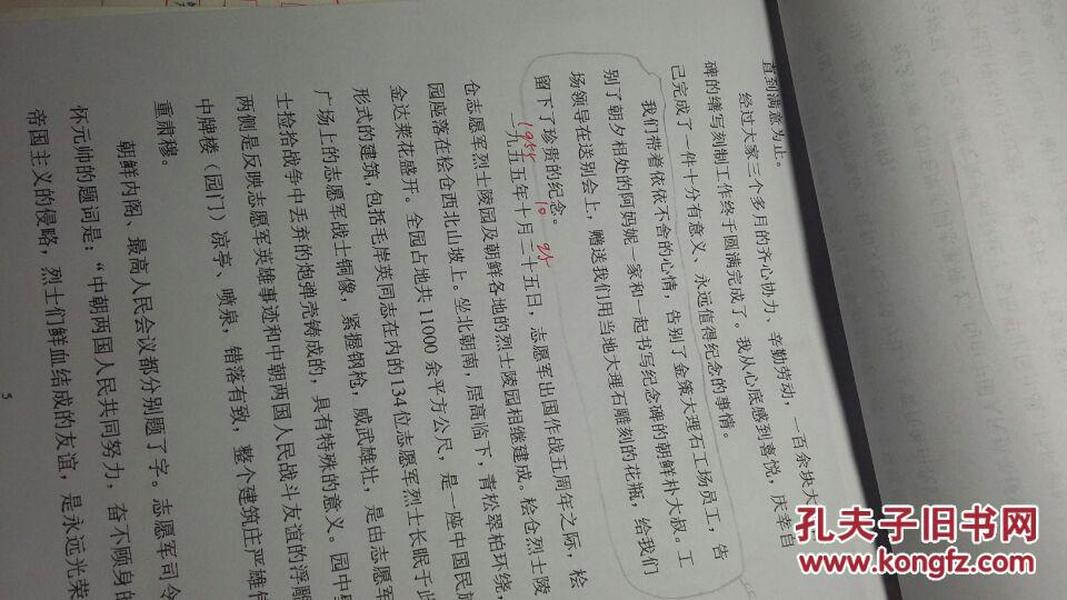 直到满意为止。
经过大家三个多月的齐心协力、辛勤劳动，一百余块大
碑的缮写刻制工作终于圆满完成了。我从心底感到喜悦，庆幸自
己完成了一件十分有意义、永远值得纪念的事情。
我们带着依依不舍的心情，告别了金策大理石工场员工，告
别了朝夕相处的阿妈妮一家和一起书写纪念碑的朝鲜朴大叔。工
场领导在送别会上，赠送我们用当地大理石雕刻的花瓶，给我们
留下了珍贵的纪念。
1955 10 25
一九五五年十月二十五日，志愿军出国作战五周年之际，桧
仓志愿军烈士陵园及朝鲜各地的烈士陵园相继建成。桧仓烈士陵
园座落在桧仓西北山坡上。坐北朝南，居高临下，青松翠柏环绕，
金达莱花盛开。全园占地共11000余平方公尺，是一座中国民族
形式的建筑，包括毛岸英同志在内的134位志愿军烈士长眠于此
广场上的志愿军战士铜像，紧握钢枪，威武雄壮，是由志愿军
士捡拾战争中丢弃的炮弹壳铸成的，具有特殊的意义。园中
两侧是反映志愿军英雄事迹和中朝两国人民战斗友谊的浮雕
中牌楼（园门）凉亭、喷泉，错落有致，整个建筑庄严雄伟
重肃穆。
朝鲜内阁、最高人民会议都分别题了字。志愿军司令
怀元帅的题词是：“中朝两国人民共同努力，奋不顾身的
帝国主义的侵略，烈士们鲜血结成的友谊，是永远光荣
5
孔夫子旧书网
www.kongfz.com